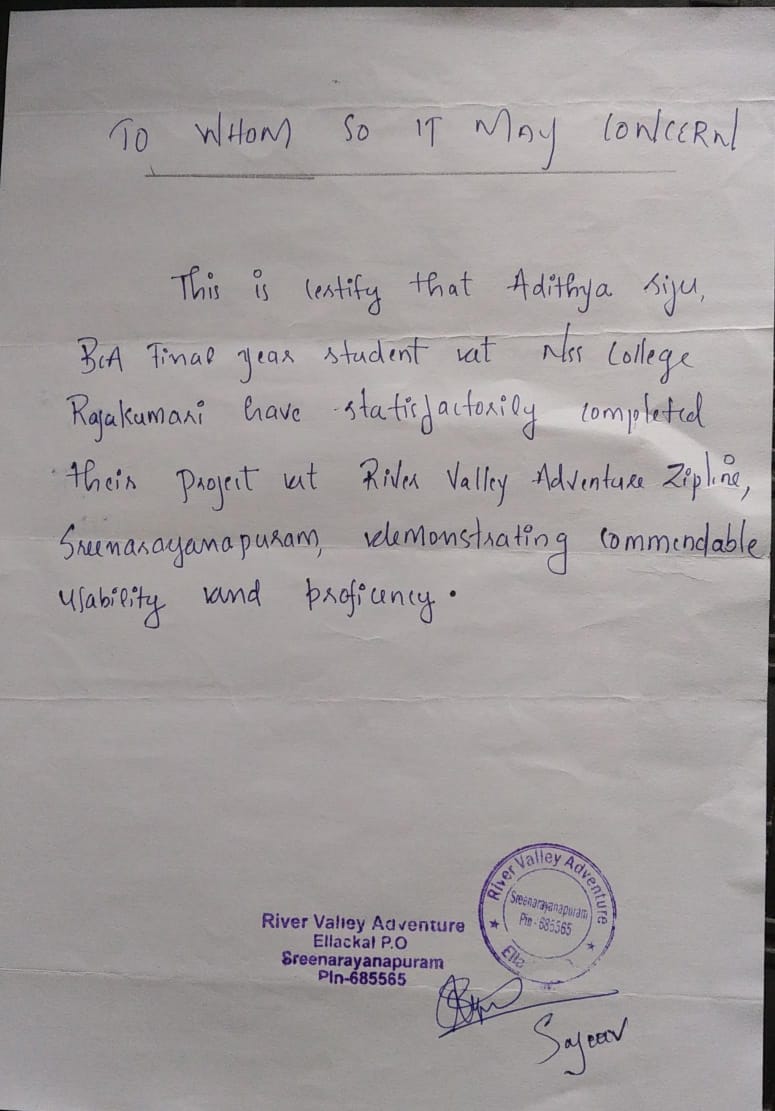 TO WHOM SO IT MAY CONCERN
This is certify that Adithya siju,
BCA Final year student at Nss College
Rajakumari have statisfactorily completed
their project at River Valley Adventure Zipline,
Sreenarayanapuram, demonstrating commendable
usability and proficency.
River Valley Adventure
Sreenarayanapuram
Pin - 685565
Ella
River Valley Adventure
Ellackal P.O
Sreenarayanapuram
PIn-685565
Sajeev